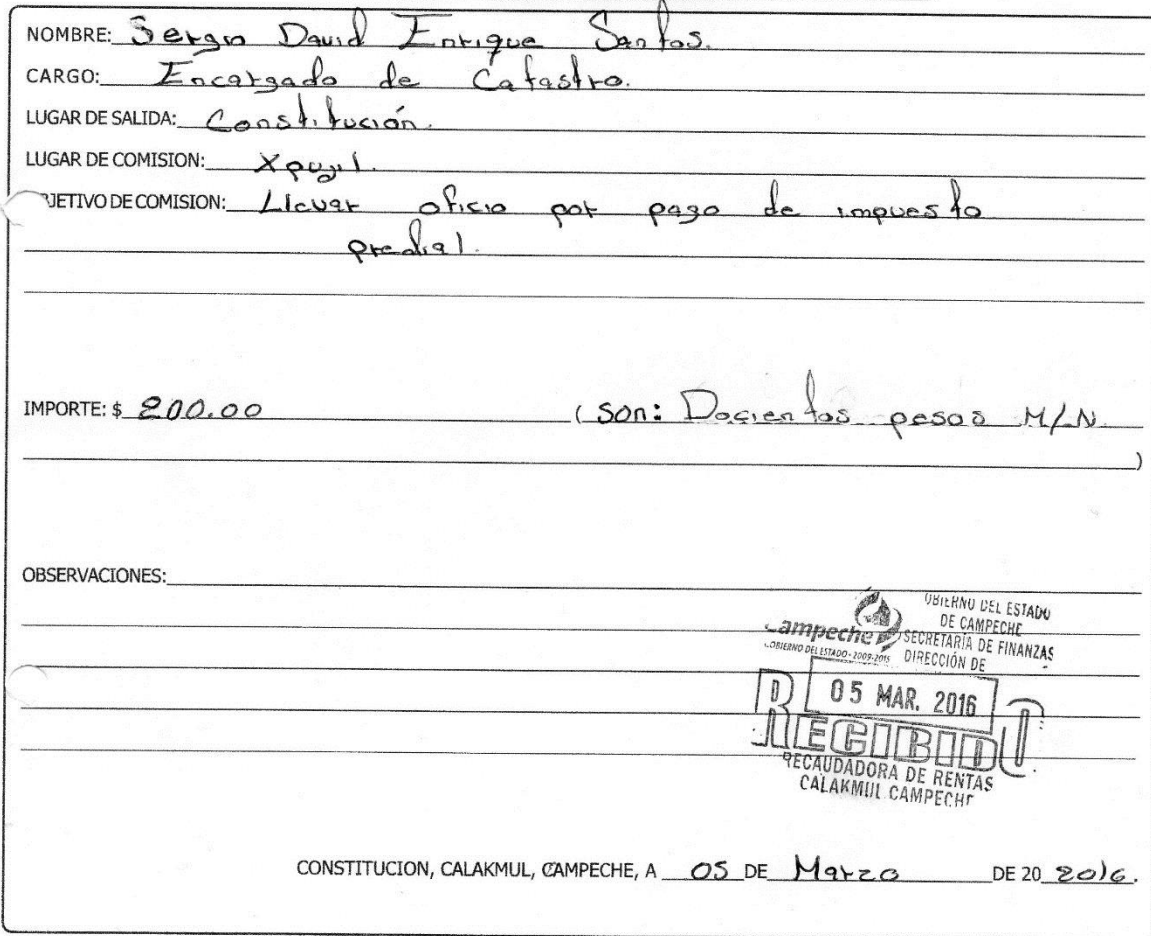 NOMBRE: Sergio David Enrique Santos.
CARGO: Encargado de Catastro.
LUGAR DE SALIDA: Constitución.
LUGAR DE COMISION: Xpujil.
JETIVO DE COMISION: Llevar oficio por pago de impuesto
predial.
IMPORTE: $ 200.00 ( son: Docientos pesos M/N.
)
OBSERVACIONES:
OBIERNO DEL ESTADO
DE CAMPECHE
SECRETARÍA DE FINANZAS
DIRECCIÓN DE
ampeche
GOBIERNO DEL ESTADO - 2009-2015
05 MAR. 2016
RECIBIDO
RECAUDADORA DE RENTAS
CALAKMUL CAMPECHE
CONSTITUCION, CALAKMUL, CAMPECHE, A 05 DE Marzo DE 20 2016.